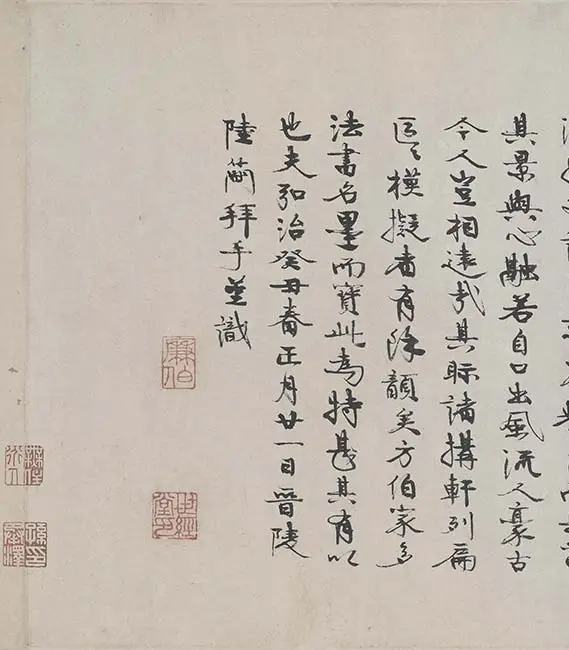 其景與心融若自口出風流人豪古
今人豈相遠哉其眎諸搆軒列扁
區〻模擬者有除顏矣方伯家多
法書名墨而寶此為特甚其有以
也夫弘治癸丑春正月廿一日晉陵
陸簡拜手並識
廉伯